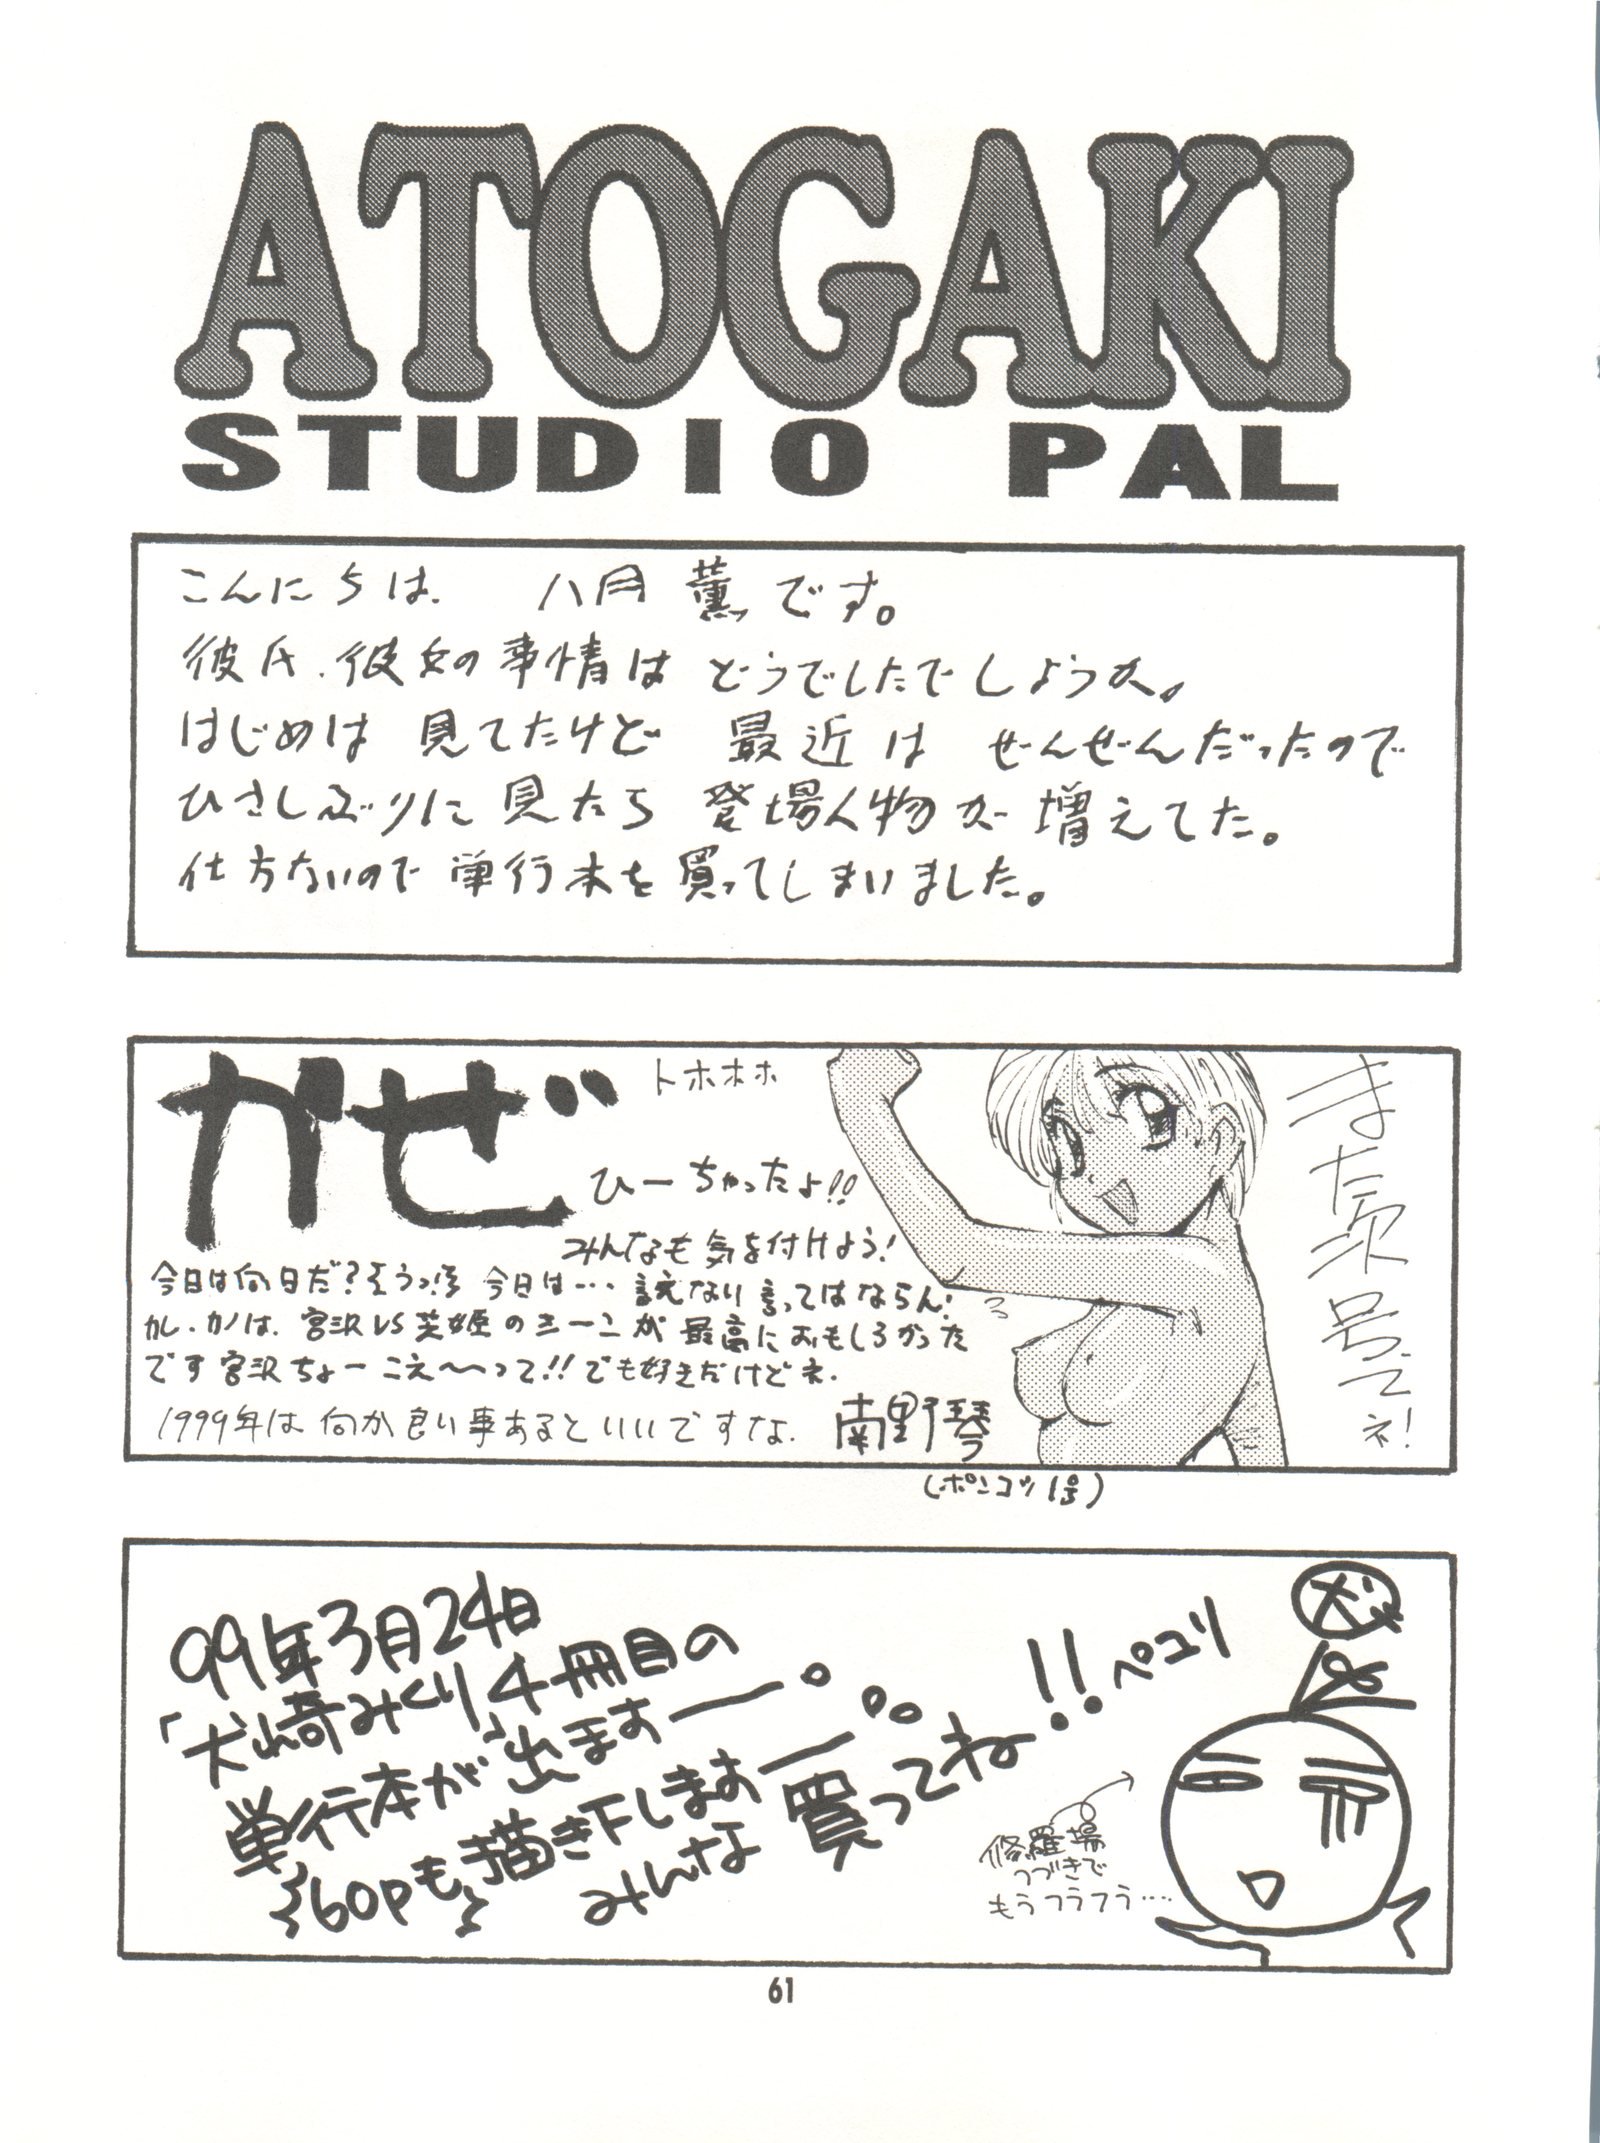 ATOGAKI
STUDIO PAL
こんにちは、八月薫です。
彼氏、彼女の事情は どうでしたでしょうか。
はじめは 見てたけど 最近は ぜーんぜんだったので
ひさしぶりに 見たら 登場人物が 増えてた。
仕方ないので 単行本を 買ってしまいました。
かぜ
トホホホ
ひーちゃったよ!!
みんなも気を付けよう!
今日は何日だ?そうっ!!今日は… 言えない言ってはならん!
カレ・カノは、宮沢VS芝姫のとーこが 最高におもしろかった
です宮沢ちょーこえ〜〜って!!でも好きだけどネ.
1999年は 何か良い事あるといいですな.
南野琴
(ポンコツ1号)
また次号でネ!
99年3月24日
「犬崎みくり」4冊目の
単行本が出ますーー。
60pも描き下しますーー。。。
みんな買ってね!!
ペコリ
犬
修羅場
つづきで
もうフラフラ‥‥
61